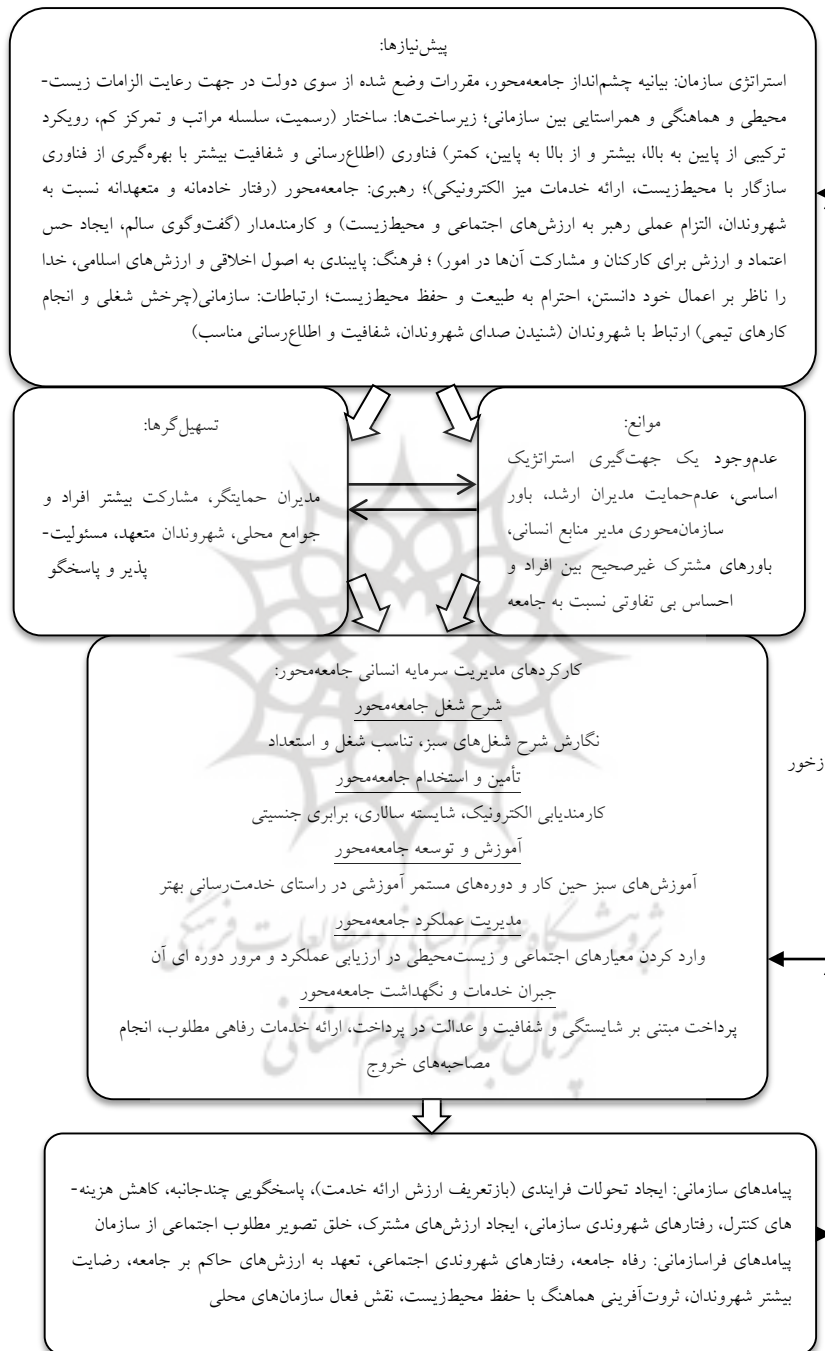 پیش‌نیازها:
استراتژی سازمان: بیانیه چشم‌انداز جامعه‌محور، مقررات وضع شده از سوی دولت در جهت رعایت الزامات زیست-
محیطی و هماهنگی و همراستایی بین سازمانی؛ زیرساخت‌ها: ساختار (رسمیت، سلسله مراتب و تمرکز کم، رویکرد
ترکیبی از پایین به بالا، بیشتر و از بالا به پایین، کمتر) فناوری (اطلاع‌رسانی و شفافیت بیشتر با بهره‌گیری از فناوری
سازگار با محیط‌زیست، ارائه خدمات میز الکترونیکی)؛ رهبری: جامعه‌محور (رفتار خادمانه و متعهدانه نسبت به
شهروندان، التزام عملی رهبر به ارزش‌های اجتماعی و محیط‌زیست) و کارمندمدار (گفت‌وگوی سالم، ایجاد حس
اعتماد و ارزش برای کارکنان و مشارکت آن‌ها در امور) ؛ فرهنگ: پایبندی به اصول اخلاقی و ارزش‌های اسلامی، خدا
را ناظر بر اعمال خود دانستن، احترام به طبیعت و حفظ محیط‌زیست؛ ارتباطات: سازمانی(چرخش شغلی و انجام
کارهای تیمی) ارتباط با شهروندان (شنیدن صدای شهروندان، شفافیت و اطلاع‌رسانی مناسب)
موانع:
عدم‌وجود یک جهت‌گیری استراتژیک
اساسی، عدم‌حمایت مدیران ارشد، باور
سازمان‌محوری مدیر منابع انسانی،
باورهای مشترک غیرصحیح بین افراد و
احساس بی تفاوتی نسبت به جامعه
تسهیل‌گرها:
مدیران حمایتگر، مشارکت بیشتر افراد و
جوامع محلی، شهروندان متعهد، مسئولیت-
پذیر و پاسخگو
کارکردهای مدیریت سرمایه انسانی جامعه‌محور:
شرح شغل جامعه‌محور
نگارش شرح شغل‌های سبز، تناسب شغل و استعداد
تأمین و استخدام جامعه‌محور
کارمندیابی الکترونیک، شایسته سالاری، برابری جنسیتی
آموزش و توسعه جامعه‌محور
آموزش‌های سبز حین کار و دوره‌های مستمر آموزشی در راستای خدمت‌رسانی بهتر
مدیریت عملکرد جامعه‌محور
وارد کردن معیارهای اجتماعی و زیست‌محیطی در ارزیابی عملکرد و مرور دوره ای آن
جبران خدمات و نگهداشت جامعه‌محور
پرداخت مبتنی بر شایستگی و شفافیت و عدالت در پرداخت، ارائه خدمات رفاهی مطلوب، انجام
مصاحبه‌های خروج
زخور
پژوهشگاه علوم انسانی و مطالعات فرهنگی
پرتال جامع علوم انسانی
پیامدهای سازمانی: ایجاد تحولات فرایندی (بازتعریف ارزش ارائه خدمت)، پاسخگویی چندجانبه، کاهش هزینه-
های کنترل، رفتارهای شهروندی سازمانی، ایجاد ارزش‌های مشترک، خلق تصویر مطلوب اجتماعی از سازمان
پیامدهای فراسازمانی: رفاه جامعه، رفتارهای شهروندی اجتماعی، تعهد به ارزش‌های حاکم بر جامعه، رضایت
بیشتر شهروندان، ثروت‌آفرینی هماهنگ با حفظ محیط‌زیست، نقش فعال سازمان‌های محلی